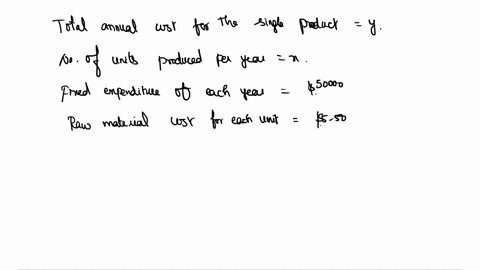 Total annual cost for the single product = y.
No. of units produced per year = x.
Fixed expenditure of each year = $50000
Raw material cost for each unit = $5.50